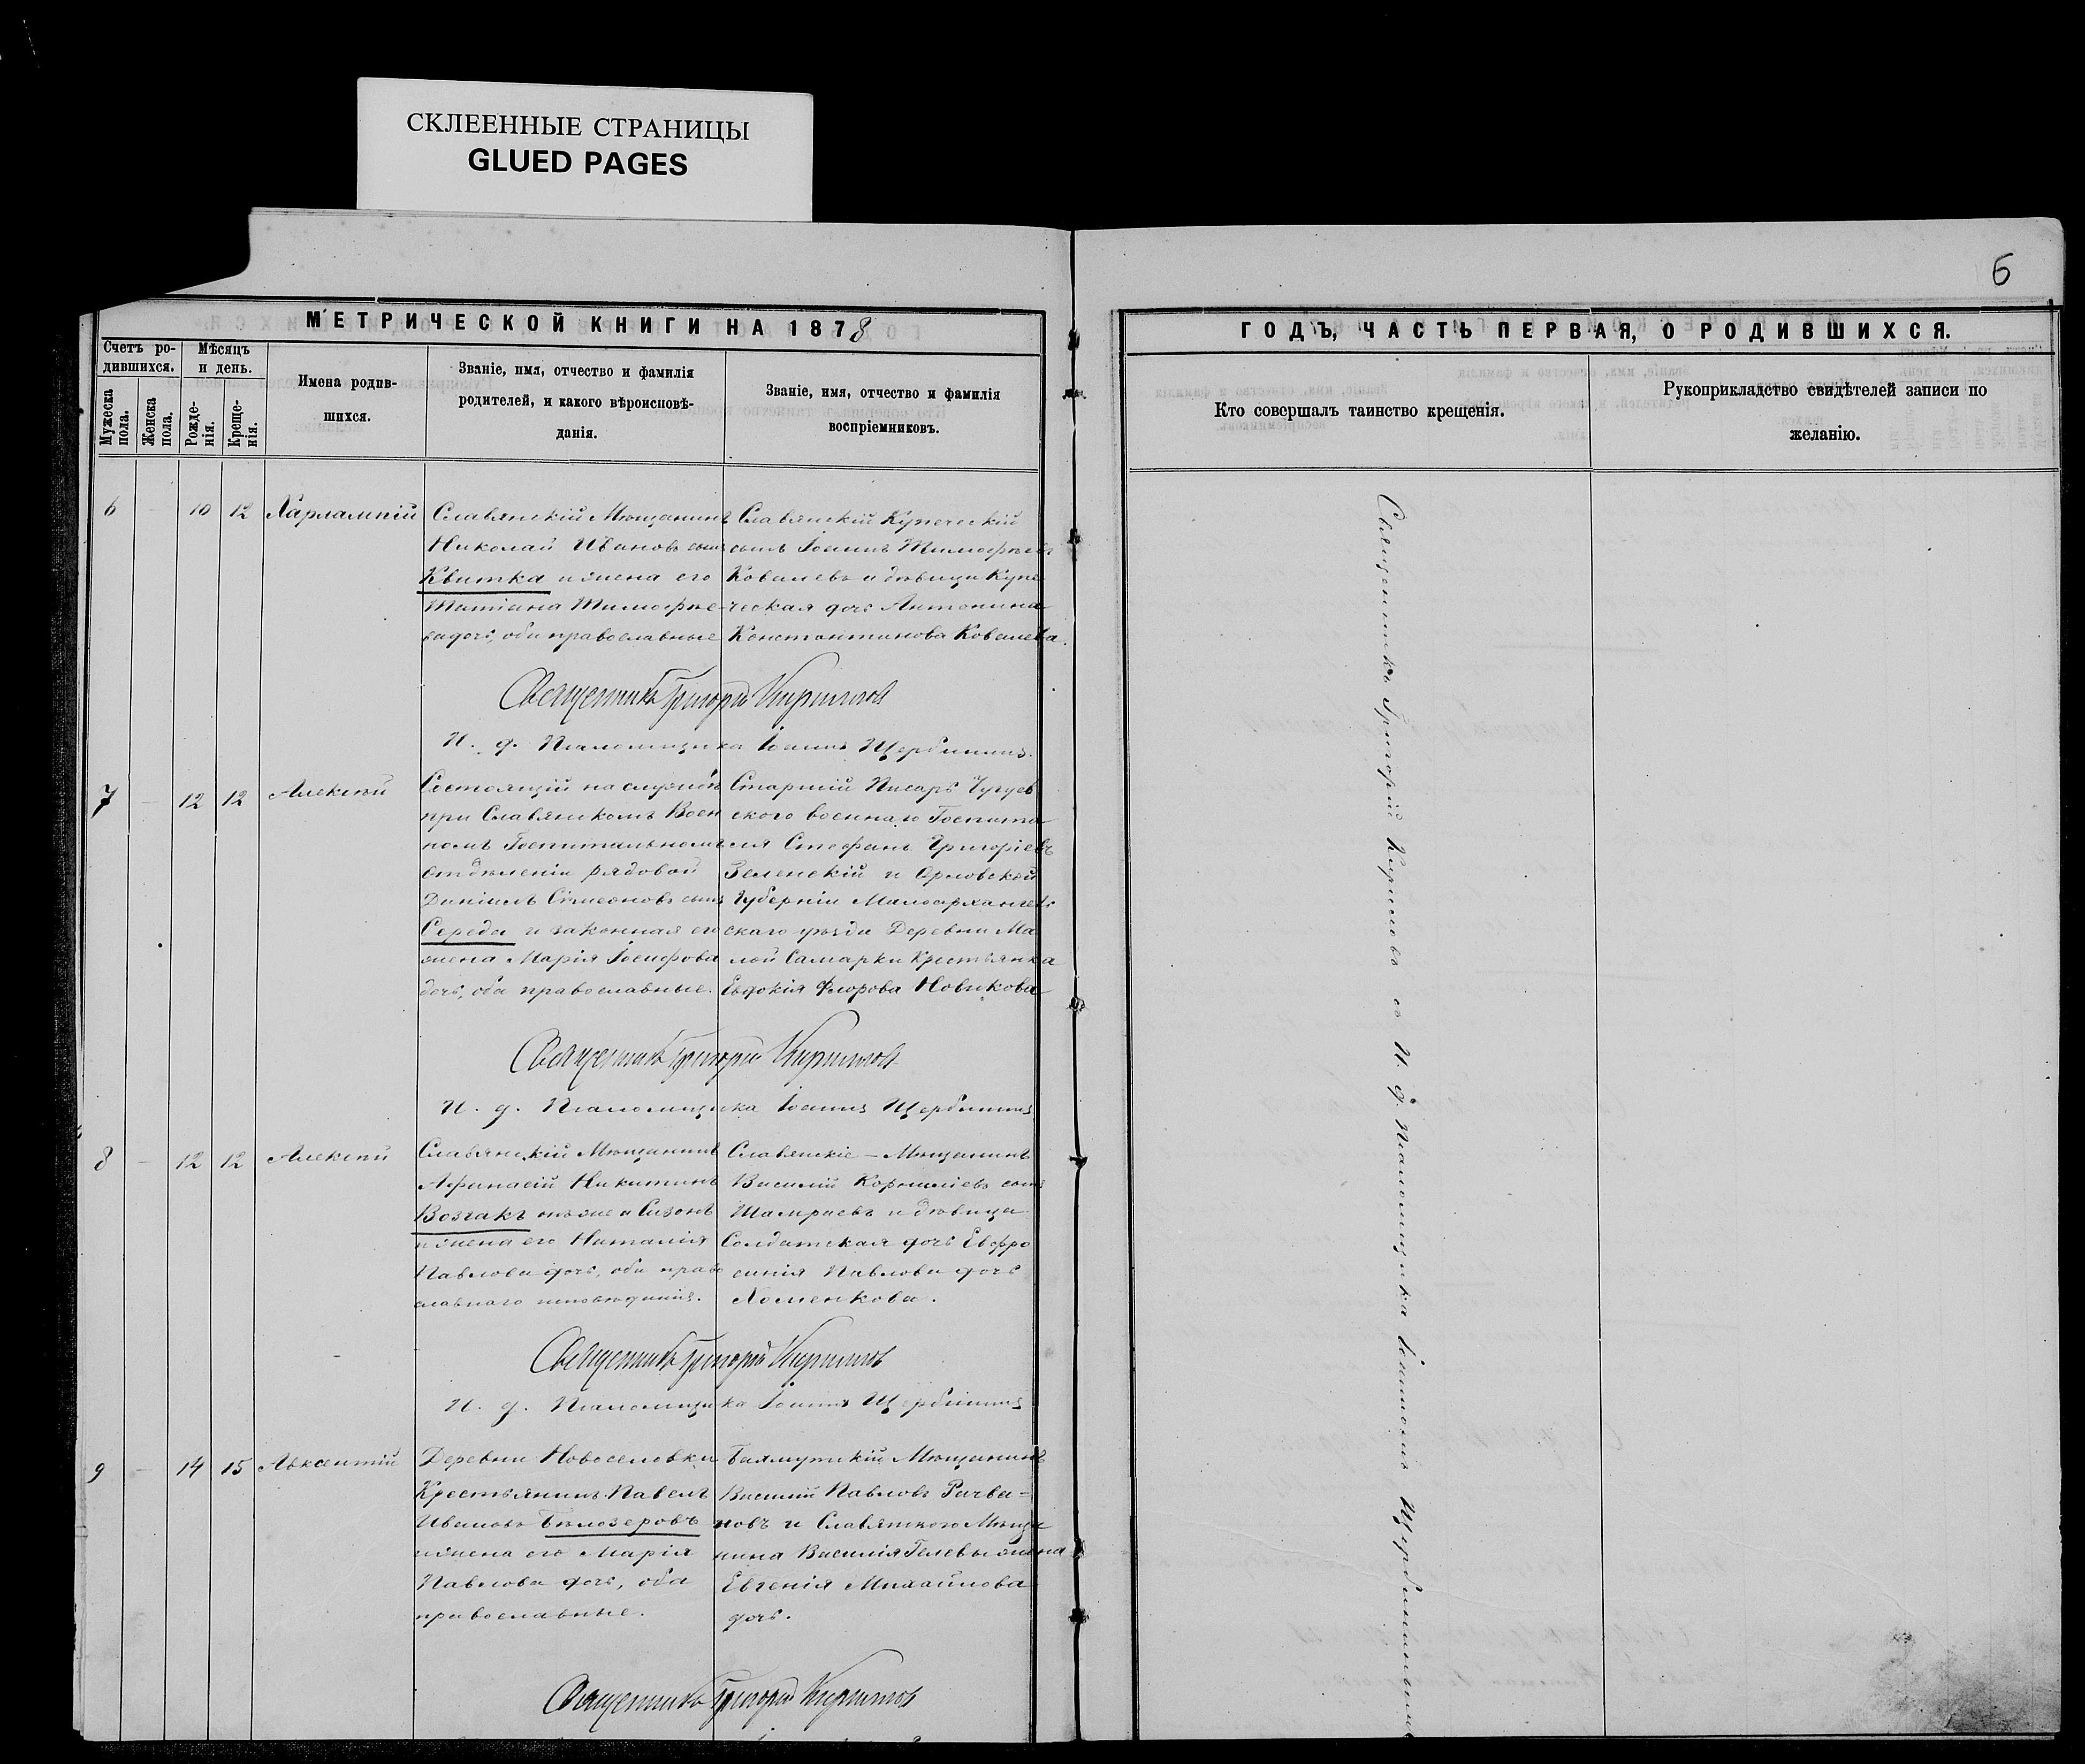 СКЛЕЕННЫЕ СТРАНИЦЫ
GLUED PAGES
6
МЕТРИЧЕСКОЙ КНИГИ НА 1878
ГОДЪ, ЧАСТЬ ПЕРВАЯ, О РОДИВШИХСЯ.
Счетъ ро-
дившихся.
Мужеска
пола.
Женска
пола.
Мѣсяцъ
и день.
Рожде-
нія.
Креще-
нія.
Имена родив-
шихся.
Званіе, имя, отчество и фамилія
родителей, и какого вѣроисповѣ-
данія.
Званіе, имя, отчество и фамилія
воспріемниковъ.
Кто совершалъ таинство крещенія.
Рукоприкладство свидѣтелей записи по
желанію.
6 - 10 12 Харлампій
Славянскій Мѣщанинъ
Николай Ивановъ сынъ
Квитка и жена его
Татіана Тимофѣе-
ва дочь, оба православные
Славянскій Купеческій
сынъ Іоаннъ Тимофѣевъ
Ковалевъ и дѣвица Купе
ческая дочь Антонина
Константинова Ковалева.
Священникъ Григорій Кириловъ
И. д. Псаломщика Іоаннъ Щербининъ.
7 - 12 12 Алексѣй
Состоящій на службѣ
при Славянскомъ Воен
номъ Госпитальномъ
отдѣленіи рядовой
Даніилъ Сѵмеоновъ сынъ
Середа и законная его
жена Марія Іосифова
дочь, оба православные.
Старшій Писарь Чугуев
ского военнаго Госпита
ля Стефанъ Григоріевъ
Зеленскій и Орловской
Губерніи Малоархангель
скаго уѣзда Деревни Ма
лой Самарки Крестьянка
Евдокія Флорова Новикова
Священникъ Григорій Кириловъ
И. д. Псаломщика Іоаннъ Щербининъ
8 - 12 12 Алексѣй
Славянскій Мѣщанинъ
Афанасій Никитинъ
Возчакъ онъ же и Сизонъ
и жена его Наталія
Павлова дочь, оба право
славнаго исповѣданія.
Славянскіе - Мѣщанинъ
Василій Корниліевъ сынъ
Шамраевъ и дѣвица
Солдатская дочь Евфро
синія Павлова дочь
Хоменкова.
Священникъ Григорій Кириловъ
И. д. Псаломщика Іоаннъ Щербининъ
9 - 14 15 Авксентій
Деревни Новоселовки
Крестьянинъ Павелъ
Ивановъ Бѣлозеровъ
и жена его Марія
Павлова дочь, оба
православные.
Бахмутскій Мѣщанинъ
Василій Павловъ Рагва-
новъ и Славянского Мѣща
нина Василія Гелевы жена
Евгенія Михайлова
дочь.
Священникъ Григорій Кириловъ
Священникъ Григорій Кириловъ съ И. д. Псаломщика Іоанномъ Щербининымъ